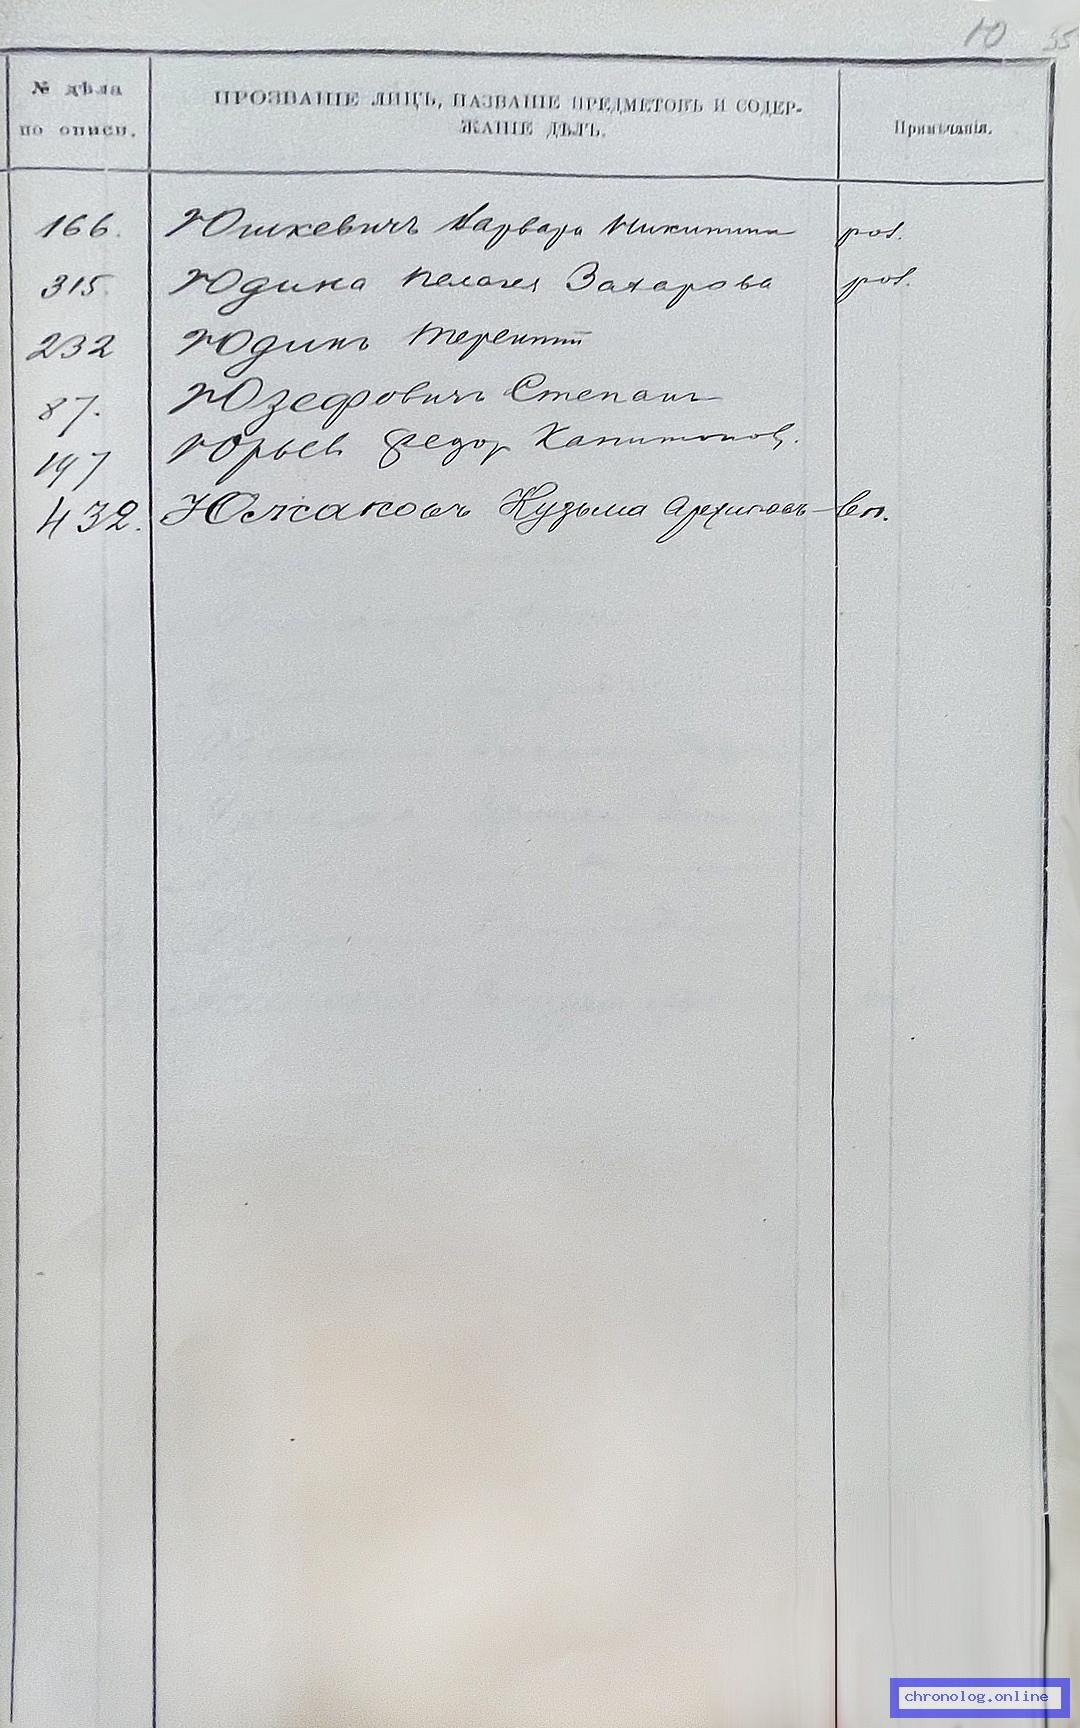 Ю 55
№ дѣла
по описи.
ПРОЗВАНІЕ ЛИЦЪ, НАЗВАНІЕ ПРЕДМЕТОВЪ И СОДЕР-
ЖАНІЕ ДѢЛЪ.
Примѣчанія.
166. Юшкевичъ Варвара Никитина роз.
315. Юдина Пелагея Захарова роз.
232 Юдинъ Терентій
87. Юзефовичъ Степанъ
197 Юрьев Федор Капитонов.
432. Южаковъ Кузьма Архиповъ Вп.
chronolog.online